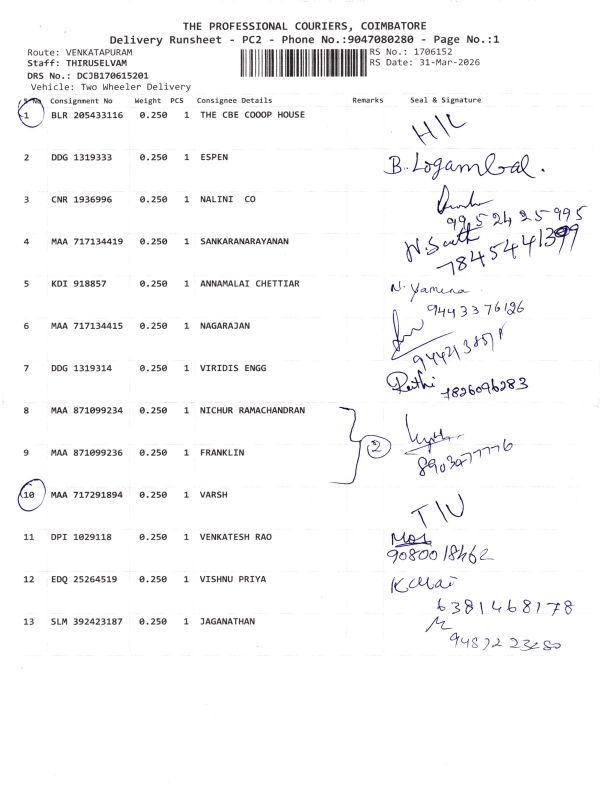 THE PROFESSIONAL COURIERS, COIMBATORE
Delivery Runsheet - PC2 - Phone No.:9047080280 - Page No.:1
Route: VENKATAPURAM RS No.: 1706152
Staff: THIRUSELVAM RS Date: 31-Mar-2026
DRS No.: DCJB170615201
Vehicle: Two Wheeler Delivery
S No Consignment No Weight PCS Consignee Details Remarks Seal & Signature
1 BLR 205433116 0.250 1 THE CBE COOOP HOUSE H/L
2 DDG 1319333 0.250 1 ESPEN B. Logambal.
3 CNR 1936996 0.250 1 NALINI CO
9952425995
4 MAA 717134419 0.250 1 SANKARANARAYANAN
7845441399
5 KDI 918857 0.250 1 ANNAMALAI CHETTIAR N. Yamuna
9443376126
6 MAA 717134415 0.250 1 NAGARAJAN
7 DDG 1319314 0.250 1 VIRIDIS ENGG Rathi 7826096283
8 MAA 871099234 0.250 1 NICHUR RAMACHANDRAN
2
9 MAA 871099236 0.250 1 FRANKLIN
10 MAA 717291894 0.250 1 VARSH
11 DPI 1029118 0.250 1 VENKATESH RAO
9080018462
12 EDQ 25264519 0.250 1 VISHNU PRIYA
6381468178
13 SLM 392423187 0.250 1 JAGANATHAN